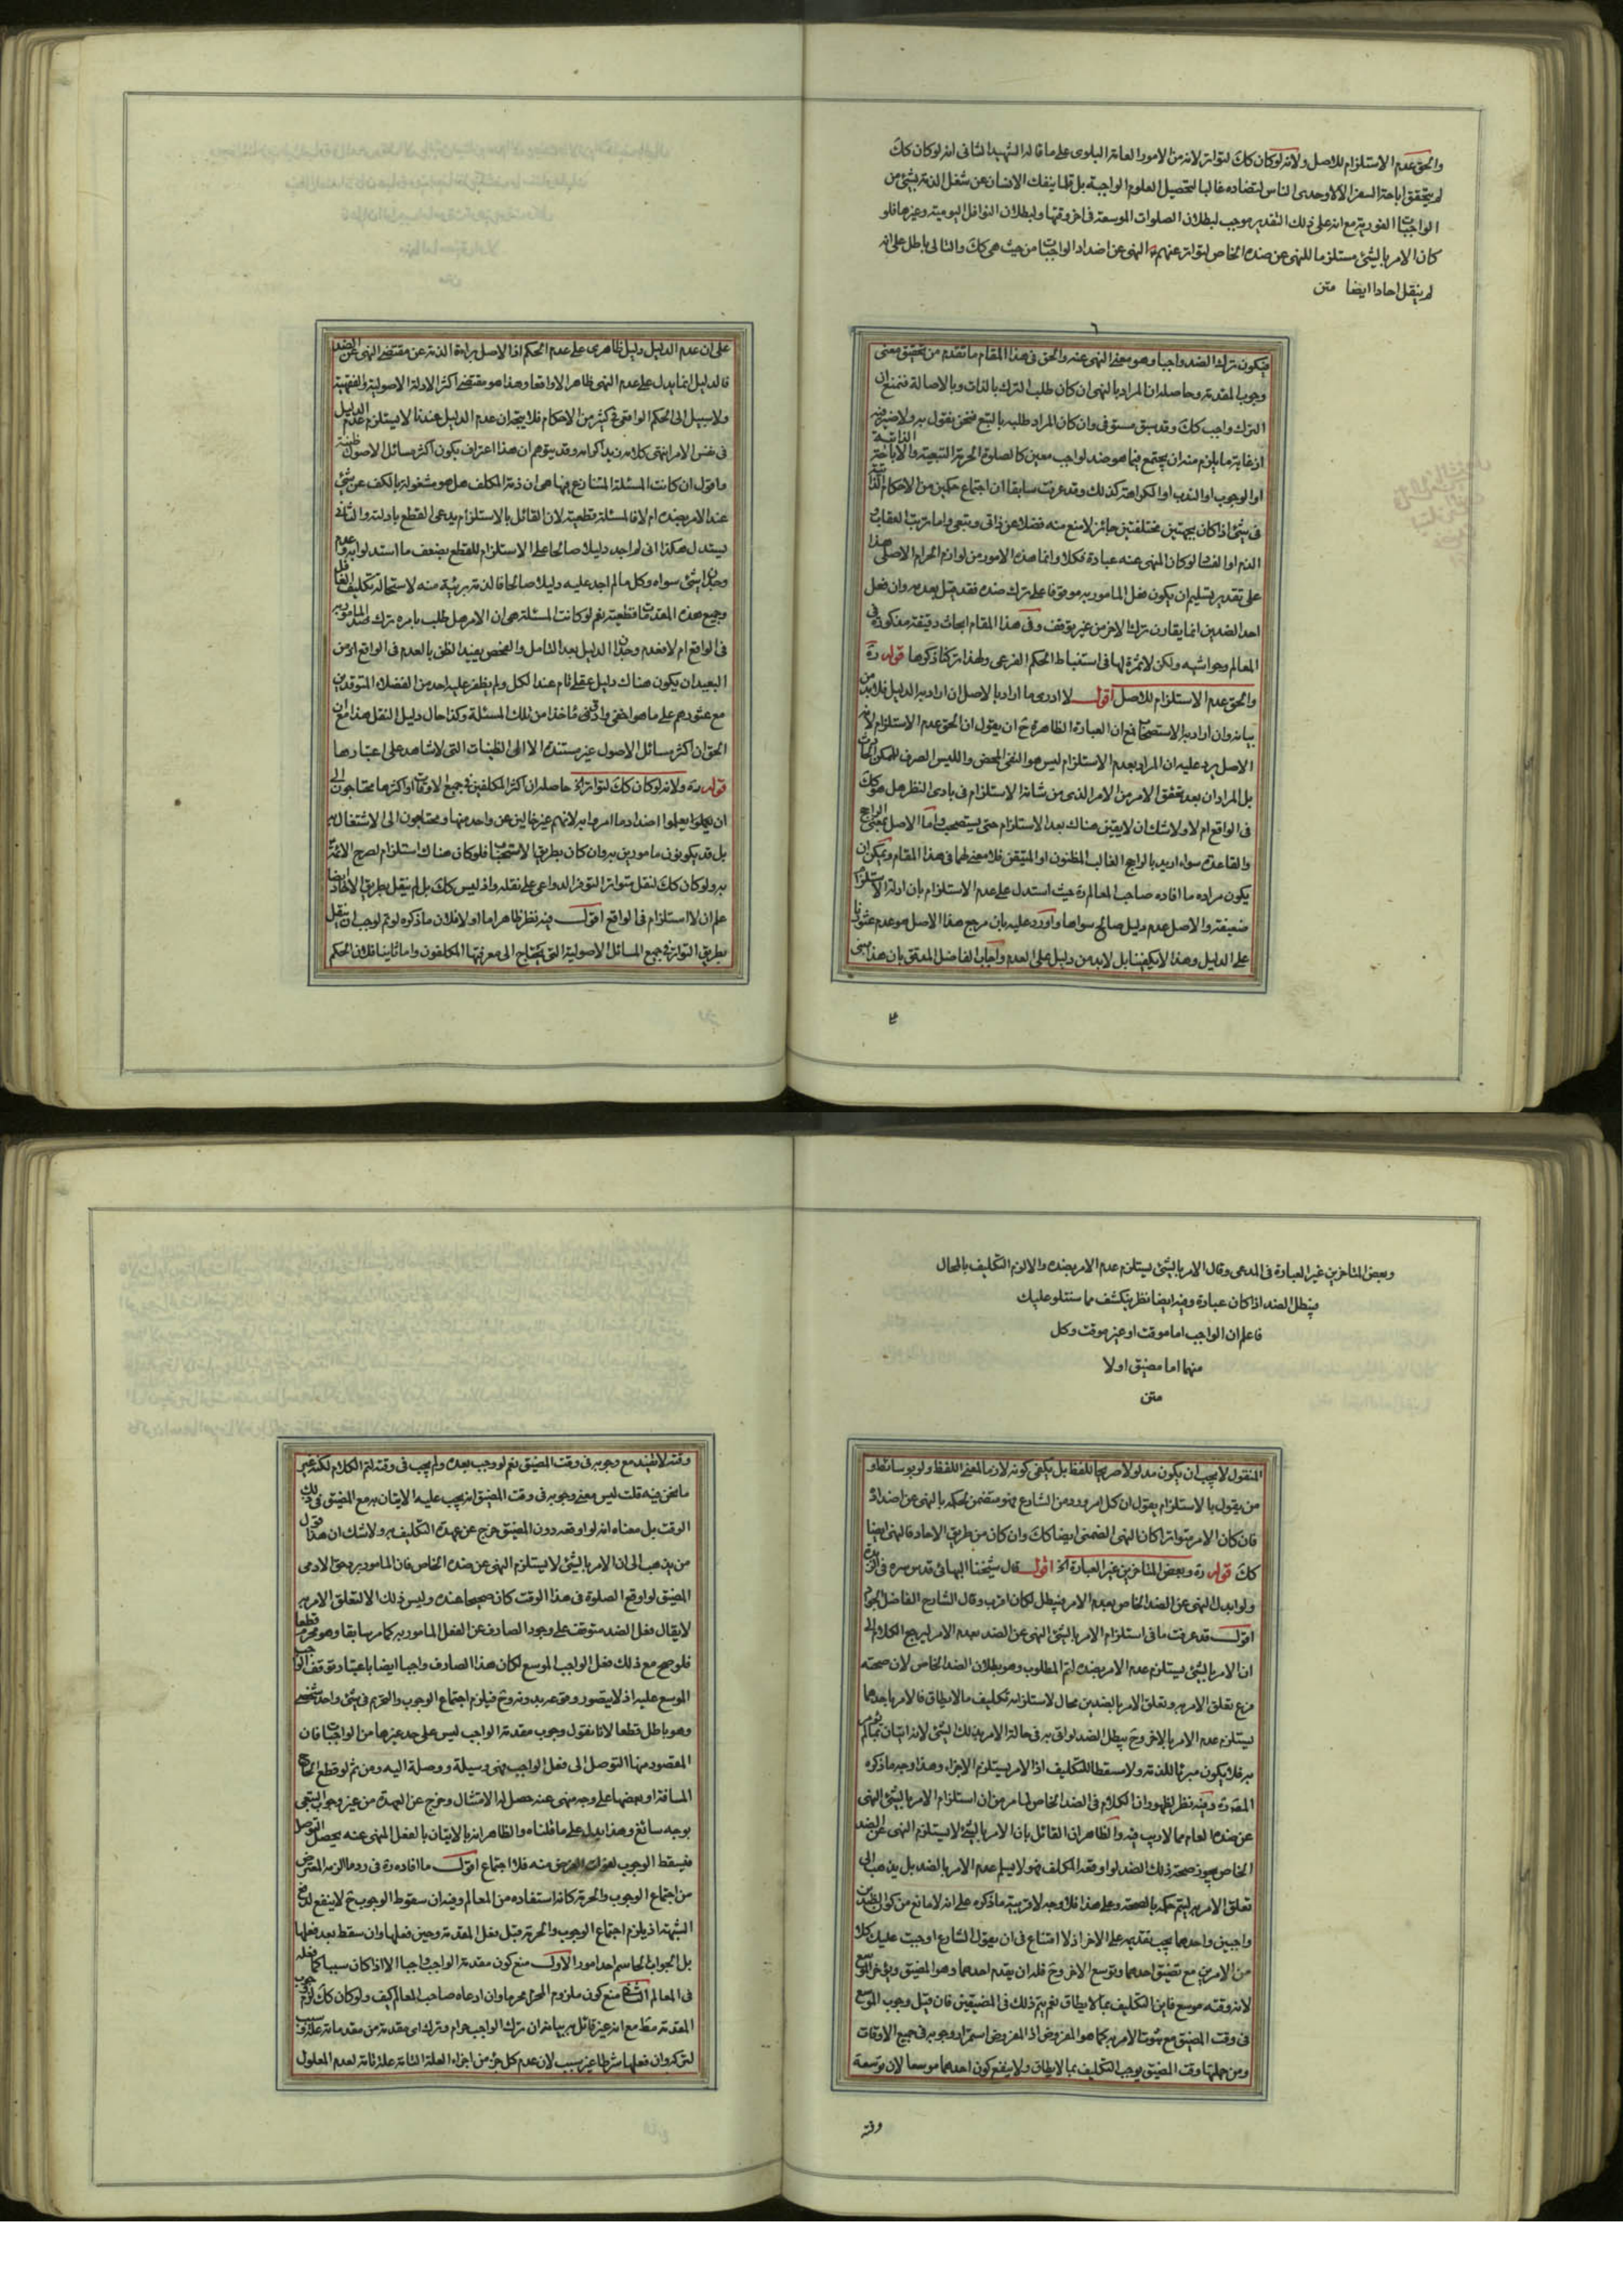 والحق عدم الاستلزام للاصل ولانه لوكان كك لتواتر لانه من الامور العامة البلوى على ما قاله الشهيد الثانى انه لوكان كك
لم يتحقق اباحة السفر الا لاوحدى الناس لتضاده غالبا لتحصيل العلوم الواجبة بل قلما ينفك الانسان عن شغل الذمة بشئ من
الواجبات الفورية مع انه على ذلك التقدير موجب لبطلان الصلوات الموسعة فى اخر وقتها ولبطلان النوافل اليومية وغيرها فلو
كان الامر بالشئ مستلزما للنهى عن ضده الخاص لتواتر عنهم النهى عن اضداد الواجبات من حيث هى كك والتالى باطل على انه
لم ينقل احادا ايضا متن
فيكون ترك الضد واجبا وهو معنى النهى عنه والحق فى هذا المقام ما تقدم من تحقيق معنى
وجوب المقدمة وحاصله ان المراد بالنهى ان كان طلب الترك بالذات وبالاصالة فنمنع ان
الترك واجب كك وقد سبق مستوفى وان كان المراد طلبه بالتبع فنحن نقول به ولا ضير فيه
اذ غاية ما يلزم منه ان يجتمع فيما هو ضد لواجب معين كالصلوة الحرمة التبعية والاباحة الذاتية
او الوجوب او الندب او الكراهة كذلك وقد عرفت سابقا ان اجتماع حكمين من الاحكام
فى شئ اذا كان بجهتين مختلفتين جائز لا منع منه فضلا عن ذاتى وتبعى واما ترتب العقاب
الذم او الفساد لو كان المنهى عنه عبادة فكلا وانما هذه الامور من لوازم الحرام الاصلى هذا
على تقدير تسليم ان يكون فعل المأمور به موقوفا على ترك ضده فقد قيل بعدمه وان فعل
احد الضدين انما يقارن ترك الاخر من غير توقف وفى هذا المقام ابحاث دقيقة مذكورة فى
المعالم وحواشيه ولكن لا ثمرة لها فى استنباط الحكم الفرعى ولهذا تركنا ذكرها قوله ره
والحق عدم الاستلزام للاصل اقول لا ادرى ما اراد بالاصل ان اراد به الدليل فلابد من
بيانه وان اراد به الاستصحاب فع ان العبارة الظاهرة ح ان يقول ان الحق عدم الاستلزام لان
الاصل يرد عليه ان المراد بعدم الاستلزام ليس هو النفى المحض والليس الصرف للممكن الحادث
بل المراد ان بعد تحقق الامر من الامر الذى من شانه الاستلزام فى بادى النظر هل هو كك
فى الواقع ام لا ولا شك ان لا يقين هناك بعد الاستلزام حتى يستصحب واما الاصل بمعنى الراجح
والقاعدة سواء اريد بالراجح الغالب المظنون او المتيقن فلا معنى لهما فى هذا المقام ويمكن ان
يكون مراده ما افاده صاحب المعالم ره حيث استدل على عدم الاستلزام بان ادلة الاستلزام
ضعيفة والاصل عدم دليل صالح سواها واورد عليه بان مرجع هذا الاصل هو عدم عثورنا
على الدليل وهذا لا يكفينا بل لابد من دليل على العدم واجاب الفاضل المدقق بان هذا مبنى
على ان عدم الدليل دليل ظاهرى على عدم الحكم اذ الاصل براءة الذمة عن مقتضى النهى عن الضد
فالدليل انما يدل على عدم النهى ظاهرا لا واقعا وهذا هو مقتضى اكثر الادلة الاصولية والفقهية
ولا سبيل الى الحكم الواقعى فى كثير من الاحكام فلا يتجه ان عدم الدليل عندنا لا يستلزم عدم الدليل
فى نفس الامر انتهى كلامه زيد اكرامه وقد يتوهم ان هذا اعتراف بكون اكثر مسائل الاصول ظنية
واقول ان كانت المسئلة المتنازع فيها هى ان ذمة المكلف هل هو مشغولة بالكف عن شئ
عند الامر بضده ام لا فالمسئلة قطعية لان القائل بالاستلزام يدعى القطع بادلته والنافى
يستدل هكذا انى لم اجد دليلا صالحا على الاستلزام للقطع بضعف ما استدلوا به وعدم
وجدان شئ سواه وكل ما لم اجد عليه دليلا صالحا فالذمة بريئة منه لاستحالة تكليف الغافل
وجميع هذه المقدمات قطعية نعم لو كانت المسئلة هى ان الامر هل طلب بامره ترك ضد المأمور به
فى الواقع ام لا فعدم وجدان الدليل بعد التامل والفحص يفيد الظن بالعدم فى الواقع اذ من
البعيد ان يكون هناك دليل عقلى تام عند الكل ولم يظفر عليه احد من الفضلاء المتوقدين
مع عثورهم على ما هو اخفى وادق ماخذا من تلك المسئلة وكذا حال دليل النقل هذا مع ان
الحق ان اكثر مسائل الاصول غير مستندة الا الى الظنيات التى لا شاهد على اعتبارها
قوله ره ولانه لو كان كك لتواتر اه حاصله ان اكثر المكلفين فى جميع الاوقات او اكثرها محتاجون الى
ان يعلموا اضداد ما امروا به لانهم غير خالين عن واحد منها ومحتاجون الى الاشتغال به
بل قد يكونون مامورين به وان كان بطريق الاستحباب فلو كان هناك استلزام لصرح الائمة
به ولو كان كك لنقل متواترا لتوفر الدواعى على نقله واذ ليس كك بل لم ينقل بطريق الاحاد ايضا
علم ان لا استلزام فى الواقع اقول فيه نظر ظاهر اما اولا فلان ما ذكره لو تم لوجب ان ينقل
بطريق التواتر فى جميع المسائل الاصولية التى يحتاج الى معرفتها المكلفون واما ثانيا فلان الحكم
وبعض المتاخرين غير العبارة فى المدعى وقال الامر بالشئ يستلزم عدم الامر بضده والا لزم التكليف بالمحال
فيبطل الضد اذا كان عبادة وفيه ايضا نظر ينكشف مما سنتلو عليك
فاعلم ان الواجب اما موقت او غير موقت وكل
منهما اما مضيق اولا
متن
المنقول لا يجب ان يكون مدلولا صريحا للفظ بل يكفى كونه لازما لمعنى اللفظ ولو بوسائط او
من يقول بالاستلزام يقول ان كل امر ورد من الشارع فهو متضمن لحكمه بالنهى عن اضداده
فان كان الامر متواترا كان النهى الضمنى ايضا كك وان كان من طريق الاحاد فالنهى ايضا
كك قوله ره وبعض المتاخرين غير العبارة اه اقول قال شيخنا البهائى قدس سره فى الزبدة
ولو ابدل النهى عن الضد الخاص بعدم الامر فيبطل لكان اقرب وقال الشارح الفاضل الجواد
اقول قد عرفت ما فى استلزام الامر بالشئ النهى عن الضد بعدم الامر ليرجع الكلام الى
ان الامر بالشئ يستلزم عدم الامر بضده لتم المطلوب وهو بطلان الضد الخاص لان صحته
فرع تعلق الامر به وتعلق الامر بالضدين محال لاستلزامه تكليف ما لا يطاق فالامر باحدهما
يستلزم عدم الامر بالاخر وح يبطل الضد لو اتى به فى حالة الامر بذلك الشئ لانه اتيان بما لم يؤمر
به فلا يكون مبرئا للذمة ولا مسقطا للتكليف اذ الامر يستلزم الاجزاء وهذا وجه ما ذكره
المصنف ره وفيه نظر لظهور ان الكلام فى الضد الخاص لما مر من ان استلزام الامر بالشئ النهى
عن ضده العام مما لا ريب فيه والظاهر ان القائل بان الامر بالشئ لا يستلزم النهى عن الضد
الخاص يجوز صحة ذلك الضد لو اوقعه المكلف فهو لا يسلم عدم الامر بالضد بل يذهب الى
تعلق الامر به ليتم حكمه بالصحة وعلى هذا فلا وجه لاقربية ما ذكره على انه لا مانع من كون الضدين
واجبين واحدهما يجب تقديمه على الاخر اذ لا امتناع فى ان يقول الشارع اوجبت عليك كلا
من الامرين مع تضيق احدهما وتوسع الاخر وح فله ان يقدم احدهما وهو المضيق ويؤخر الموسع
لانه وقته موسع فاين التكليف بما لا يطاق نعم يتم ذلك فى المضيقين فان قيل وجوب الموسع
فى وقت المضيق مع ثبوت الامر به كما هو المفروض اذ المفروض استمرار وجوبه فى جميع الاوقات
ومن جملتها وقت المضيق يوجب التكليف بما لا يطاق ولا ينفع كون احدهما موسعا لان توسعة
وقته
وقته لا تفيد مع وجوبه فى وقت المضيق نعم لو وجب بعده ولم يجب فى وقته لتم الكلام لكنه غير
ما نحن فيه قلت ليس معنى وجوبه فى وقت المضيق انه يجب عليه الاتيان به مع المضيق فى ذلك
الوقت بل معناه انه لو اوقعه دون المضيق خرج عن عهدة التكليف به ولا شك ان هذا قول
من يذهب الى ان الامر بالشئ لا يستلزم النهى عن ضده الخاص فان المامور به وحق الادمى
المضيق لو اوقع الصلوة فى هذا الوقت كان صحيحا عنده وليس ذلك الا لتعلق الامر به
لا يقال فعل الضد متوقف على وجود الصارف عن الفعل المامور به كما مر سابقا وهو محرم قطعا
فلو صح مع ذلك فعل الواجب الموسع لكان هذا الصارف واجبا ايضا باعتبار توقف الواجب
الموسع عليه اذ لا يتصور وقوعه بدونه وح فيلزم اجتماع الوجوب والتحريم فى شئ واحد شخصى
وهو باطل قطعا لانا نقول وجوب مقدمة الواجب ليس على حد غيرها من الواجبات فان
المقصود منها التوصل الى فعل الواجب فهى وسيلة ووصلة اليه ومن ثم لو قطع الحاج
المسافة او بعضها على وجه منهى عنه حصل له الامتثال وخرج عن العهدة من غير وجوب السعى
بوجه سائغ وهذا يدل على ما قلناه والظاهر انه بالاتيان بالفعل المنهى عنه يحصل التوصل
فيسقط الوجوب لفوات الغرض منه فلا اجتماع اقول ما افاده ره فى رد ما الزمه المعترض
من اجتماع الوجوب والحرمة كانه استفاده من المعالم وفيه ان سقوط الوجوب ح لا ينفع لدفع
الشبهة اذ يلزم اجتماع الوجوب والحرمة قبل فعل المقدمة وحين فعلها وان سقط بعد فعلها
بل الجواب الحاسم احد امور الاول منع كون مقدمة الواجب واجبا الا اذا كان سببا كما فعله
فى المعالم الثانى منع كون ملزوم المحرم محرما وان ادعاه صاحب المعالم كيف ولو كان كك لزم وجوب
المقدمة مط مع انه غير قائل به بيانه ان ترك الواجب حرام وترك اى مقدمة من مقدماته علة وسبب
لتركه وان فعلها شرطا غير سبب لان عدم كل جزء من اجزاء العلة التامة علة تامة لعدم المعلول